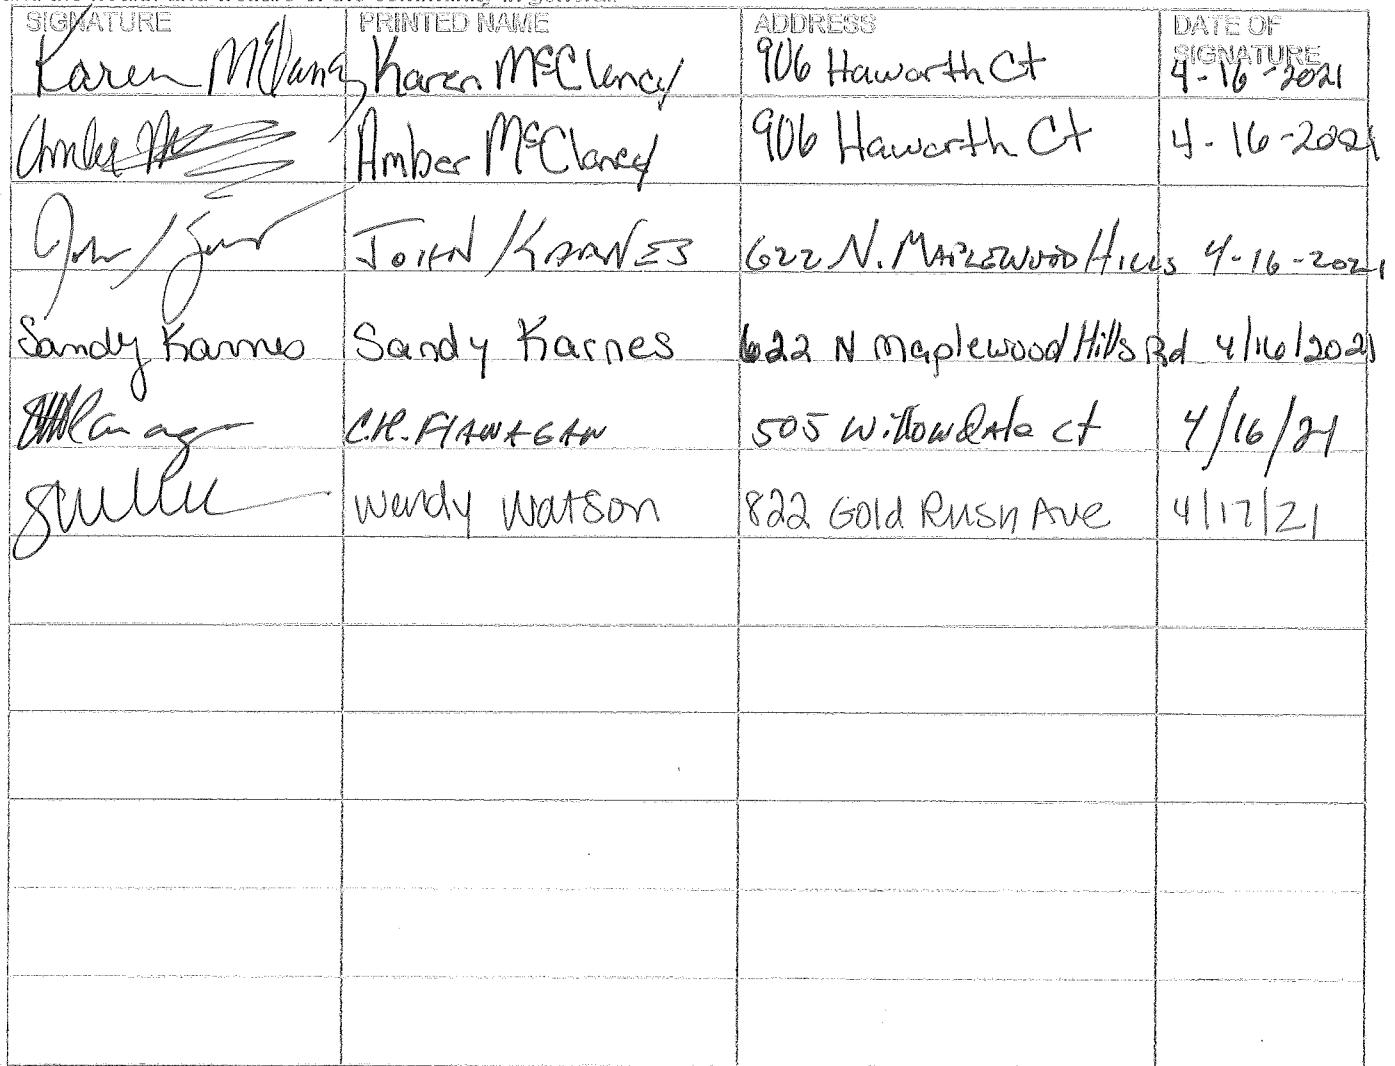 SIGNATURE PRINTED NAME ADDRESS DATE OF SIGNATURE
Karen McClancy Karen McClancy 906 Haworth Ct 4-16-2021
Amber Amber McClancy 906 Haworth Ct 4-16-2021
John Karnes JOHN KARNES 622 N. MAPLEWOOD HILLS 4-16-2021
Sandy Karnes Sandy Karnes 622 N Maplewood Hills Rd 4/16/2021
C.R. FLANAGAN 505 Willowdale ct 4/16/21
Wendy Watson 822 Gold Rush Ave 4/17/21